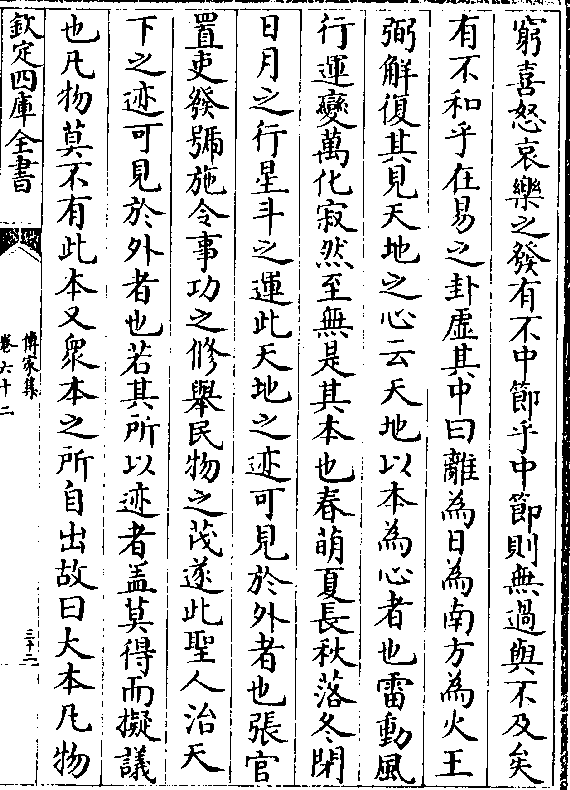 窮喜怒哀樂之發有不中節乎中節則無過與不及矣
有不和乎在易之卦虛其中曰離為日為南方為火王
弼解復其見天地之心云天地以本為心者也雷動風
行運變萬化寂然至無是其本也春萌夏長秋落冬閉
日月之行星斗之運此天地之迹可見於外者也張官
置吏發號施令事功之修舉民物之茂遂此聖人治天
下之迹可見於外者也若其所以迹者蓋莫得而擬議
也凡物莫不有此本又衆本之所自出故曰大本凡物
欽定四庫全書
傳家集
卷六十二
三十二